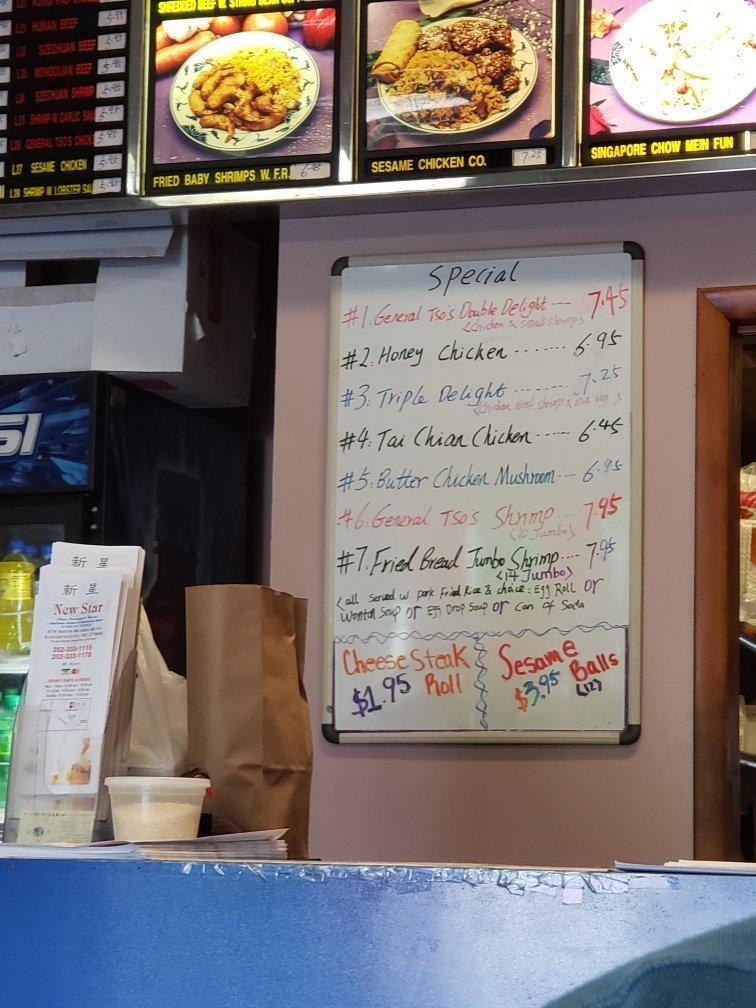 L21 HUNAN BEEF 5.95
L22 SZECHUAN BEEF 5.95
L23 MONGOLIAN BEEF 5.95
L24 SZECHUAN SHRIMP 5.95
L25 SHRIMP W. GARLIC SAU
L26 GENERAL TSO'S CHICK
L27 SESAME CHICKEN 5.95
L28 SHRIMP W. LOBSTER SAU 5.95
SHREDDED BEEF W. STRING BEAN
FRIED BABY SHRIMPS W. F.R. 6.45
SESAME CHICKEN CO. 7.25
SINGAPORE CHOW MEIN FUN
Special
#1. General Tso's Double Delight ---- 7.45
<Chicken & small shrimp>
#2. Honey Chicken ....... 6.95
#3. Triple Delight ........ 7.25
#4. Tai Chian Chicken ----- 6.45
#5. Butter Chicken Mushroom --- 6.95
#6. General Tso's Shrimp ... 7.95
<10 Jumbo>
#7. Fried Bread Jumbo Shrimp ---- 7.95
<14 Jumbo>
<all Served w. pork Fried Rice & choice: Egg Roll or
Wonton Soup or Egg Drop Soup or Can of Soda
Cheese Steak Roll
$1.95
Sesame Balls
$3.95 (12)
SI
新 星
新 星
New Star
252-333-1115
252-333-1176
OPEN 7 DAYS A WEEK